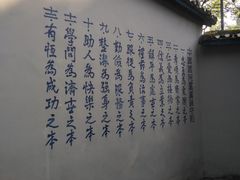 中國國民黨黨員守則
一忠勇為愛國之本
二孝順為齊家之本
三仁愛為接物之本
四信義為立業之本
五和平為處世之本
六禮節為治事之本
七服從為負責之本
八勤儉為服務之本
九整潔為強身之本
十助人為快樂之本
十一學問為濟世之本
十二有恆為成功之本